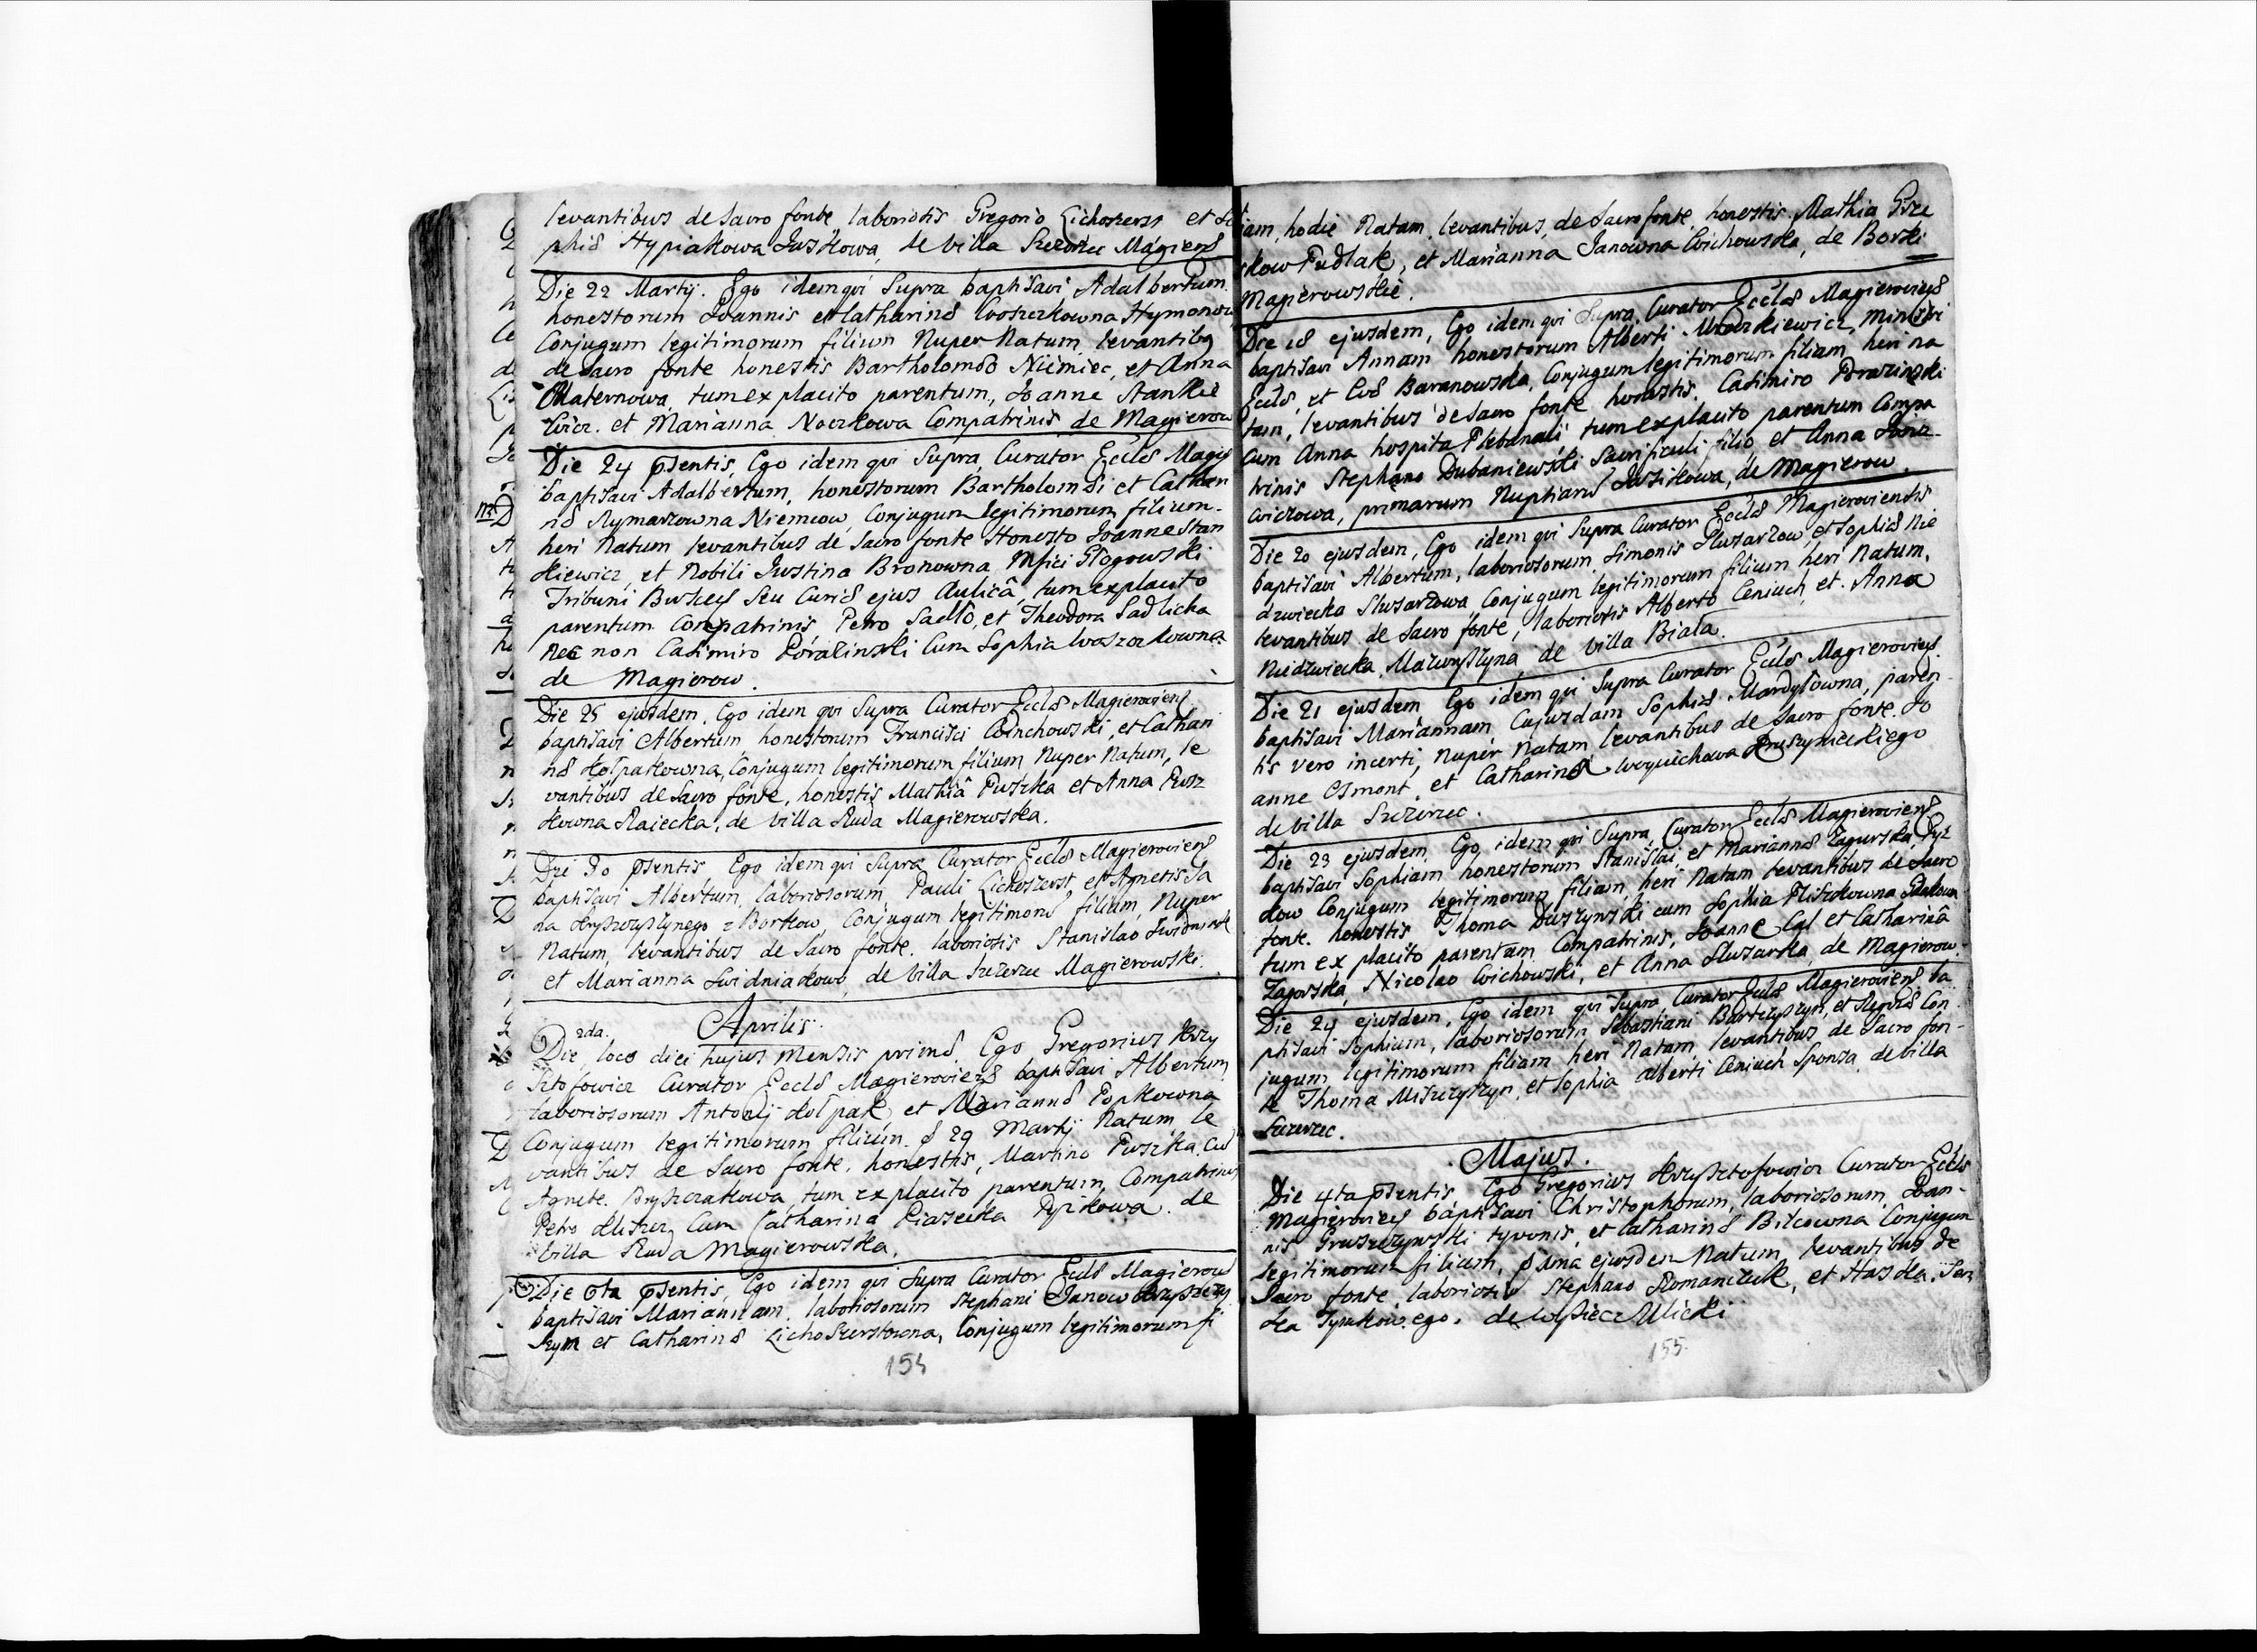 levantibus de Sacro fonte laboriosis Gregorio Lichoszerst et So
phiæ Hypiakowa Juskowa, de Villa Szczerzec Magierovs
Die 22 Martij. Ego idem qui Supra baptisavi Adalbertum
honestorum Joannis et Catharinæ Woszczkowna Hymonow
Conjugum legitimorum filium Nuper Natum levantibq
de Sacro fonte honestis Bartholomæo Niemiec, et Anna
Maternowa, tum ex placito parentum, Joanne Stankie
wicz. et Marianna Noczkowa Compatrinis de Magierow
Die 24 pſentis, Ego idem qui Supra, Curator Eccls Magie
baptisavi Adalbertum, honestorum Bartholomæi et Cathari
næ Rymarzowna Niemcow, Conjugum legitimorum filium.
heri Natum levantibus de Sacro fonte Honesto Joanne Stan
kiewicz, et Nobili Justina Bronowna, Mfici Głogowski
Tribuni Buscens Seu Curiæ ejus Aulicâ, tum ex placito
parentum Compatrinis Petro Sadło, et Theodora Sadlicka
nec non Casimiro Poraziński Cum Sophia Woszczkowna
de Magierow.
Die 25 ejusdem, Ego idem qui Supra Curator Eccls Magierowiens
baptisavi Albertum honestorum Francisci Woichowski, et Cathari
næ Kołpakowna, Conjugum legitimorum filium Nuper Natum, le
vantibus de Sacro fonte, honestis Mathiâ Puszka et Anna Pusz
kowna Raiecka, de Villa Ruda Magierowska.
Die 30 pſentis Ego idem qui Supra Curator Eccls Magierowiens
baptisavi Albertum, laboriosorum Pauli Lichoszerst, et Agnetis Ja
na Kryszczyszynego z Borkow, Conjugum legitimorum filium, Nuper
Natum, levantibus de Sacro fonte. laboriosis Stanislao Swidniak
et Marianna Swidniakowa, de Villa Szczerzec Magierowski.
Aprilis.
Die 2da, loco diei hujus Mensis primæ. Ego Gregorius Krzy
sztofowicz Curator Eccls Magieroviens baptisavi Albertum
laboriosorum Antonij Kołpak, et Mariannæ Popkowna
Conjugum legitimorum filium. ƥ 29 Martij Natum le
vantibus de Sacro fonte, honestis, Martino Puszka, Cum
Agnete. Bryszczakowa, tum ex placito parentum, Compatrinis
Petro Kliszcz Cum Catharina Piasecka Pyzikowa. de
Villa Ruda Magierowska.
Die 6ta pſentis, Ego idem qui Supra Curator Eccls Magierow
baptisavi Mariannam. laboriosorum Stephani Janow Kryszczy
szyn et Catharinæ Lichoszerstowna, Conjugum legitimorum fi
154
liam, hodie Natam, levantibus, de Sacro fonte, honestis Mathia Grze
skow Pudlak, et Marianna Janowna Woichowska, de Borki
Magierowskie.
Die 18 ejusdem, Ego idem qui Supra, Curator Eccls Magieroviens
baptisavi Annam honestorum Alberti Mroczkiewicz, Ministri
Eccls, et Evæ Baranowska, Conjugum legitimorum filiam, heri na
tam, levantibus de Sacro fonte honestis. Casimiro Poraziński
cum Anna hospita Plebanali, tum ex placito parentum Compa
trinis Stephano Dubaniewski Sacrificuli filio et Anna
wiczowa, primarum Nuptiarum Jusikowa, de Magierow.
Die 20 ejusdem, Ego idem qui Supra Curator Eccls Magieroviensis
baptisavi Albertum, laboriosorum Simonis Slusarzow, et Sophiæ Nie
dzwiecka Slusarzowa, Conjugum legitimorum filium heri Natum,
levantibus de Sacro fonte, laboriosis Alberto Ceniuch, et Anna
Niedzwiecka, Mazuryszyna de Villa Biała.
Die 21 ejusdem Ego idem qui Supra Curator Eccls Magieroviens
baptisavi Mariannam, Cujusdam Sophiæ Mardyłowna, paren
tis vero incerti, Nuper Natam levantibus de Sacro fonte. Jo
anne Osmont, et Catharina Woyciechowa Kruszynieckiego
de Villa Szczerzec.
Die 23 ejusdem, Ego, idem qui Supra, Curator Eccls Magieroviens
baptisavi Sophiam honestorum Stanislai, et Mariannæ Zagurska, Pyz
kow Conjugum legitimorum filiam heri Natam levantibus de Sacro
fonte. honestis Thoma Duszynski cum Sophia Pliszkowna
tum ex placito parentum Compatrinis, Joanne Cal et Catharinâ
Zagorska, Nicolao Woichowski, et Anna Slusarka, de Magierow.
Die 24 ejusdem, Ego idem qui Supra Curator Eccls Magieroviens ba
ptisavi Sophium, laboriosorum, Sebastiani Bartczyszyn, et Reginæ Con
jugum legitimorum filiam heri Natam, levantibus de Sacro fon-
te Thoma Misczyszyn, et Sophia Alberti Ceniuch Sponsa, de Villa
Szczerzec.
Majus.
Die 4ta pſentis Ego Gregorius Krzysztofowicz Curator Eccls
Magieroviens baptisavi Christophorum, laboriosorum, Joan-
nis Gruszczynski tyronis, et Catharinæ Bilcowna Conjugum
legitimorum filium, ƥ ima ejusdem Natum, levantibus de
Sacro fonte, laboriosis Stephano Romanczuk, et Haska.
ka Tymkowego. de Ulicki
155